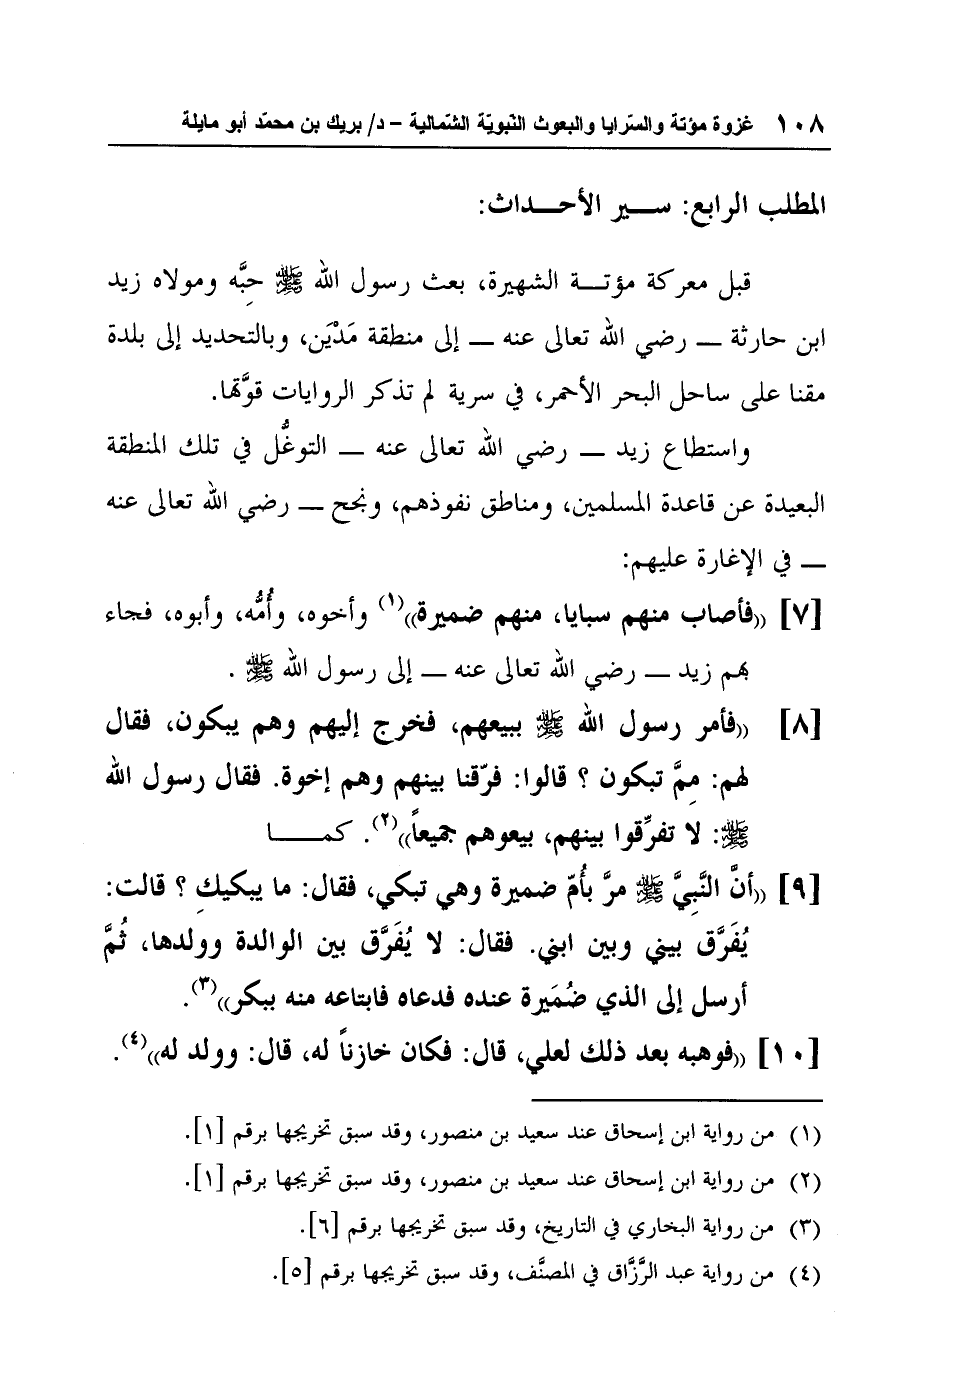 ١٠٨ غزوة مؤتة والسّرايا والبعوث النّبويّة الشّمالية – د/ بريك بن محمّد أبو مايلة
المطلب الرابع: ســـير الأحـــداث:
قبل معركة مؤتـــة الشهيرة، بعث رسول الله ﷺ حِبَّه ومولاه زيد
ابن حارثة ــ رضي الله تعالى عنه ــ إلى منطقة مَدْيَن، وبالتحديد إلى بلدة
مقنا على ساحل البحر الأحمر، في سرية لم تذكر الروايات قوَّتها.
واستطاع زيد ــ رضي الله تعالى عنه ــ التوغُّل في تلك المنطقة
البعيدة عن قاعدة المسلمين، ومناطق نفوذهم، ونجح ــ رضي الله تعالى عنه
ــ في الإغارة عليهم:
[٧] ((فأصاب منهم سبايا، منهم ضميرة))(١) وأخوه، وأُمُّه، وأبوه، فجاء
بهم زيد ــ رضي الله تعالى عنه ــ إلى رسول الله ﷺ .
[٨] ((فأمر رسول الله ﷺ ببيعهم، فخرج إليهم وهم يبكون، فقال
لهم: مِمَّ تبكون ؟ قالوا: فرّقنا بينهم وهم إخوة. فقال رسول الله
ﷺ: لا تفرِّقوا بينهم، بيعوهم جميعاً))(٢). كمـــــا
[٩] ((أنَّ النَّبِيَّ ﷺ مرَّ بأُمّ ضميرة وهي تبكي، فقال: ما يبكيكِ ؟ قالت:
يُفَرَّق بيني وبين ابني. فقال: لا يُفَرَّق بين الوالدة وولدها، ثُمَّ
أرسل إلى الذي ضُمَيرة عنده فدعاه فابتاعه منه ببكر))(٣).
[١٠] ((فوهبه بعد ذلك لعلي، قال: فكان خازناً له، قال: وولد له))(٤).
(١) من رواية ابن إسحاق عند سعيد بن منصور، وقد سبق تخريجها برقم [١].
(٢) من رواية ابن إسحاق عند سعيد بن منصور، وقد سبق تخريجها برقم [١].
(٣) من رواية البخاري في التاريخ، وقد سبق تخريجها برقم [٦].
(٤) من رواية عبد الرَّزَّاق في المصنَّف، وقد سبق تخريجها برقم [٥].